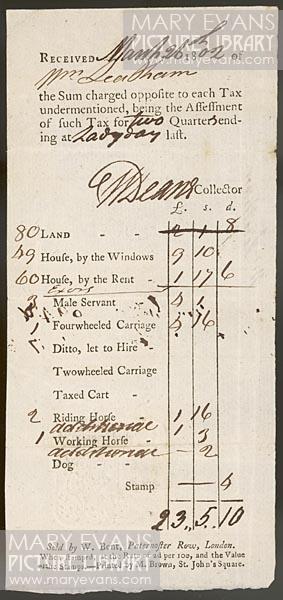 MARY EVANS
PICTURE LIBRARY
www.maryevans.com
RECEIVED March 26 180 of
Wm Leatham
the Sum charged opposite to each Tax
undermentioned, being the Assessment
of such Tax for two Quarters end-
ing at Ladyday last.
Deans Collector
£. s. d.
80 LAND - - 2 1 8
49 House, by the Windows 9 10
60 House, by the Rent - 1 17 6
Male Servant - 1
1 Fourwheeled Carriage 16
Ditto, let to Hire -
Twowheeled Carriage
Taxed Cart -
2 Riding Horse - 1 16
additional
1 Working Horse - 1 3
additional - 2
Dog - -
Stamp - 4
23 5 10
Sold by W. Bent, Paternoster Row, London.
per 100, and the Value
of the Stamps.—Printed by Brown, St. John's Square.
MARY EVANS
PICTURE LIBRARY
www.maryevans.com